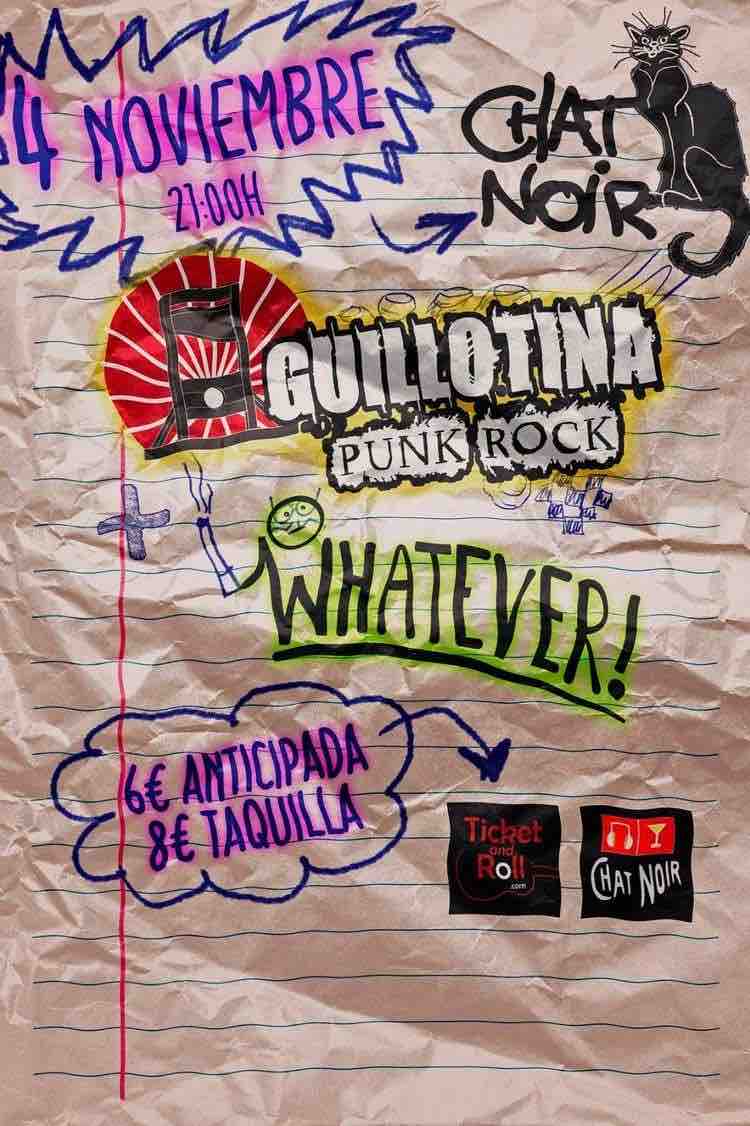 4 NOVIEMBRE
21:00H
CHAT
NOIR
GUILLOTINA
PUNK ROCK
+
WHATEVER!
6€ ANTICIPADA
8€ TAQUILLA
Ticket
and
Roll
.com
CHAT NOIR